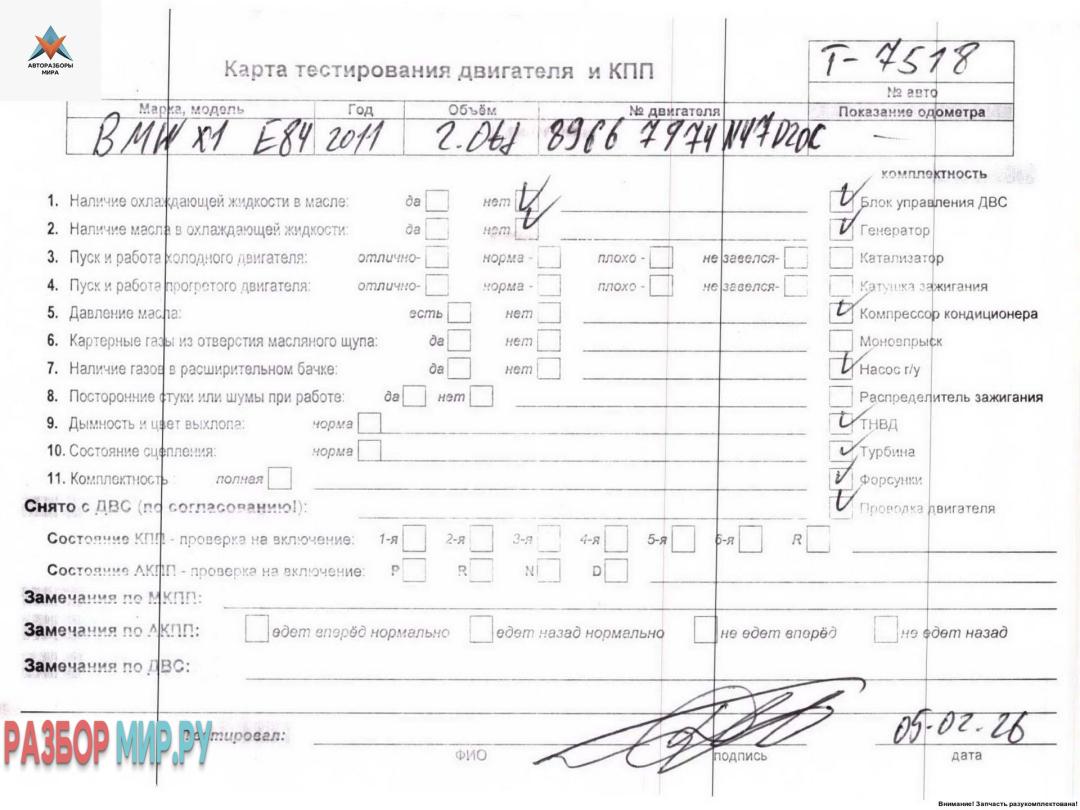 АВТОРАЗБОРЫ
МИРА
Карта тестирования двигателя и КПП
Т-7518
№ авто
Марка, модель Год Объём № двигателя Показание одометра
BMW X1 E84 2011 2.0td 8966 7974 N47D20C —
комплектность
1. Наличие охлаждающей жидкости в масле: да нет Блок управления ДВС
2. Наличие масла в охлаждающей жидкости: да нет Генератор
3. Пуск и работа холодного двигателя: отлично- норма - плохо - не завелся- Катализатор
4. Пуск и работа прогретого двигателя: отлично- норма - плохо - не завелся- Катушка зажигания
5. Давление масла: есть нет Компрессор кондиционера
6. Картерные газы из отверстия масляного щупа: да нет Моновпрыск
7. Наличие газов в расширительном бачке: да нет Насос г/у
8. Посторонние стуки или шумы при работе: да нет Распределитель зажигания
9. Дымность и цвет выхлопа: норма ТНВД
10. Состояние сцепления: норма Турбина
11. Комплектность : полная Форсунки
Снято с ДВС (по согласованию!): Проводка двигателя
Состояние КПП - проверка на включение: 1-я 2-я 3-я 4-я 5-я 6-я R
Состояние АКПП - проверка на включение: P R N D
Замечания по МКПП:
Замечания по АКПП: едет вперёд нормально едет назад нормально не едет вперёд не едет назад
Замечания по ДВС:
РАЗБОР МИР.РУ
Тестировал: 05-02-26
ФИО подпись дата
Внимание! Запчасть разукомплектована!